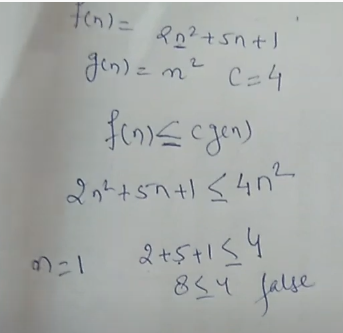 f(n) = 2n²+5n+1
g(n) = n² C=4
f(n) ≤ c g(n)
2n²+5n+1 ≤ 4n²
n=1 2+5+1 ≤ 4
8 ≤ 4 false